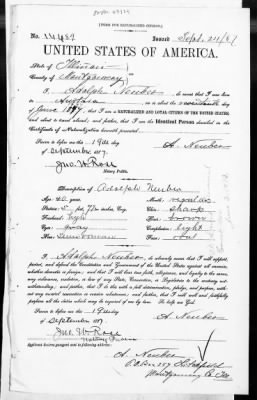 [FORM FOR NATURALIZED CITIZEN.]
No. 14489 Issued Sept. 24/87
UNITED STATES OF AMERICA.
State of Illinois
County of Montgomery
I, Adolph Neuber, do swear that I was born
in Austria, on or about the day
of June 1847; that I am a NATURALIZED AND LOYAL CITIZEN OF THE UNITED STATES
and about to travel abroad; and further, that I am the Identical Person described in the
Certificate of Naturalization herewith presented.
Sworn to before me this 19th day
of September 1887. A. Neuber
Jno. W. Rose
Notary Public.
Description of Adolph Neuber
Age: 40 years. Mouth: regular
Stature: 5 feet inches, Eng. Chin: sharp
Forehead: high Hair: brown
Eyes: gray Complexion: light
Nose: Face:
I, Adolph Neuber, do solemnly swear that I will support,
protect, and defend the Constitution and Government of the United States against all enemies,
whether domestic or foreign; and that I will bear true faith, allegiance, and loyalty to the same,
any ordinance, resolution, or law of any State, Convention, or Legislature to the contrary not-
withstanding; and further, that I do this with a full determination, pledge, and purpose, with-
out any mental reservation or evasion whatsoever; and further, that I will well and faithfully
perform all the duties which may be required of me by law. So help me God.
Sworn to before me this 19th day
of September 1887. A. Neuber
Jno. W. Rose
Notary Public
A. Neuber
P.O. Box 257
Montgomery Co. Ill